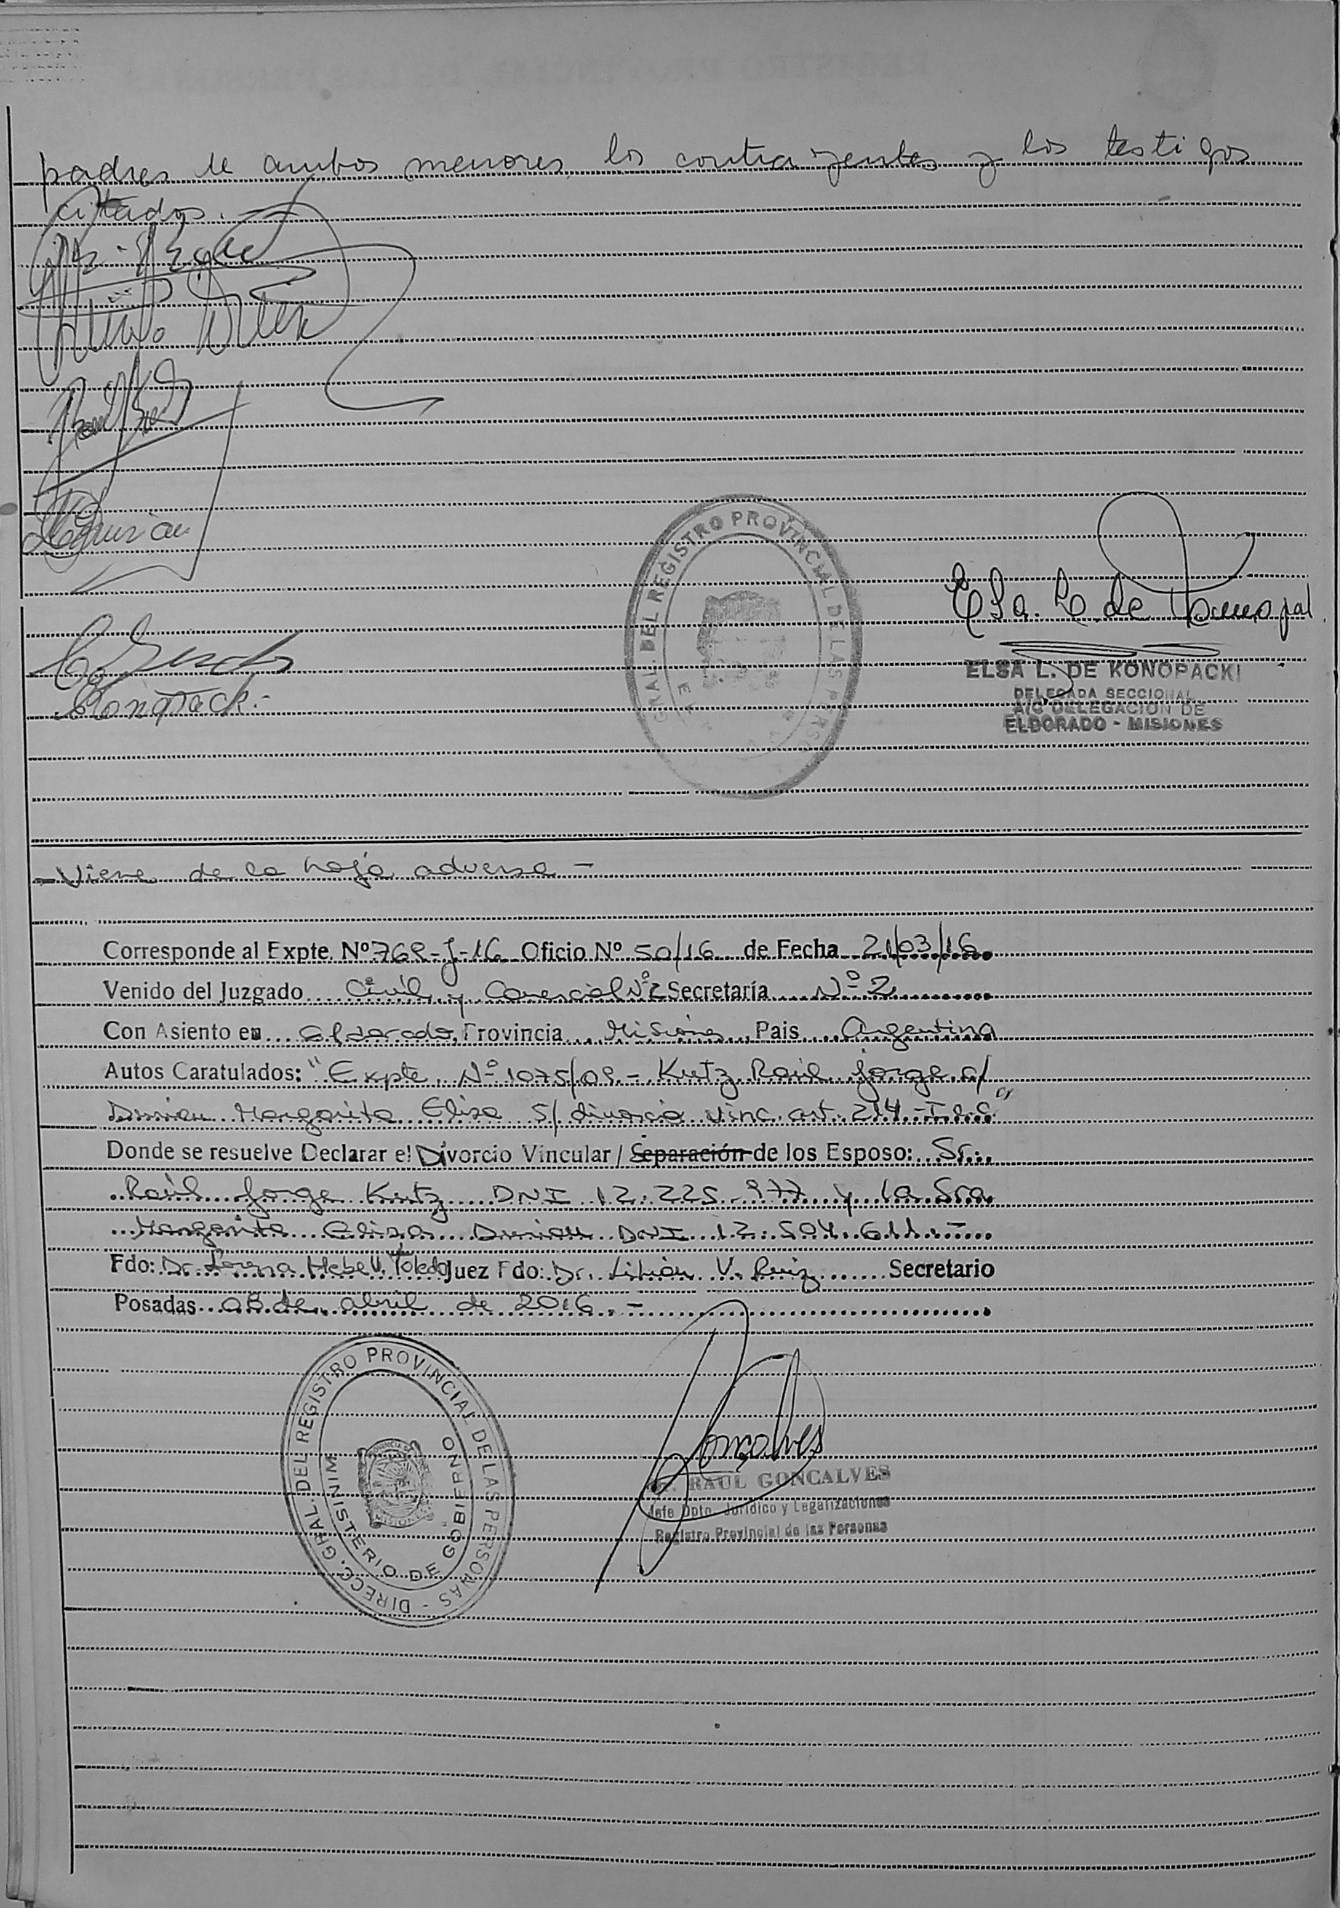 padres de ambos menores, los contrayentes y los testigos
citados.
DEL REGISTRO PROVINCIAL DE LAS PERSO
Elsa L. de Konopacki
ELSA L. DE KONOPACKI
DELEGADA SECCIONAL
A/C DELEGACION DE
ELDORADO - MISIONES
-Viene de la hoja adversa-
Corresponde al Expte. Nº 768-J-16 Oficio Nº 50/16 de Fecha 21/03/16
Venido del Juzgado Civil y Comercial Nº 2 Secretaría Nº 2
Con Asiento en Eldorado, Provincia Misiones, Pais Argentina
Autos Caratulados: "Expte Nº 1075/08 - Kutz Raúl Jorge c/
Margarita Elisa S/ divorcio vinc. art. 214
Donde se resuelve Declarar el Divorcio Vincular / Separación de los Esposo: Sr.
Raúl Jorge Kutz DNI 12.225.977 y la Sra
Margarita Elisa DNI 12.504.611.-
Fdo: Dr. Lorena Hebe V. Toledo Juez Fdo: Dr. Lilián V. Ruiz Secretario
Posadas 08 de abril de 2016.-
DIRECC. GRAL. DEL REGISTRO PROVINCIAL DE LAS PERSONAS -
MINISTERIO DE GOBIERNO
Goncalves
RAUL GONCALVES
Jefe Dpto. Jurídico y Legalizaciones
Registro Provincial de las Personas